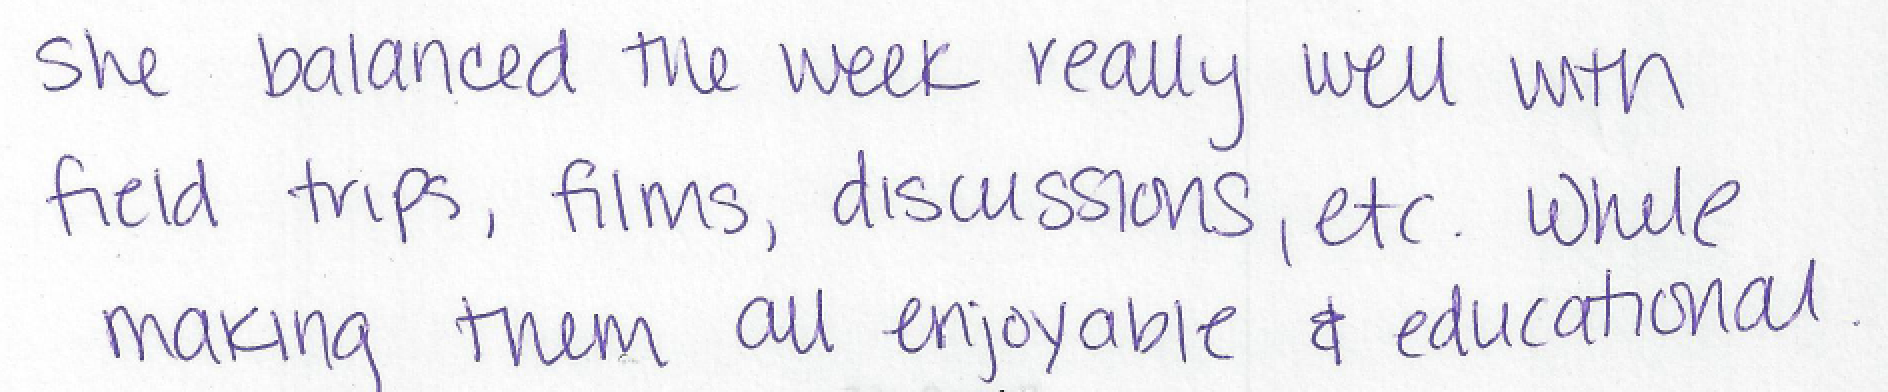 She balanced the week really well with
field trips, films, discussions, etc. while
making them all enjoyable & educational.